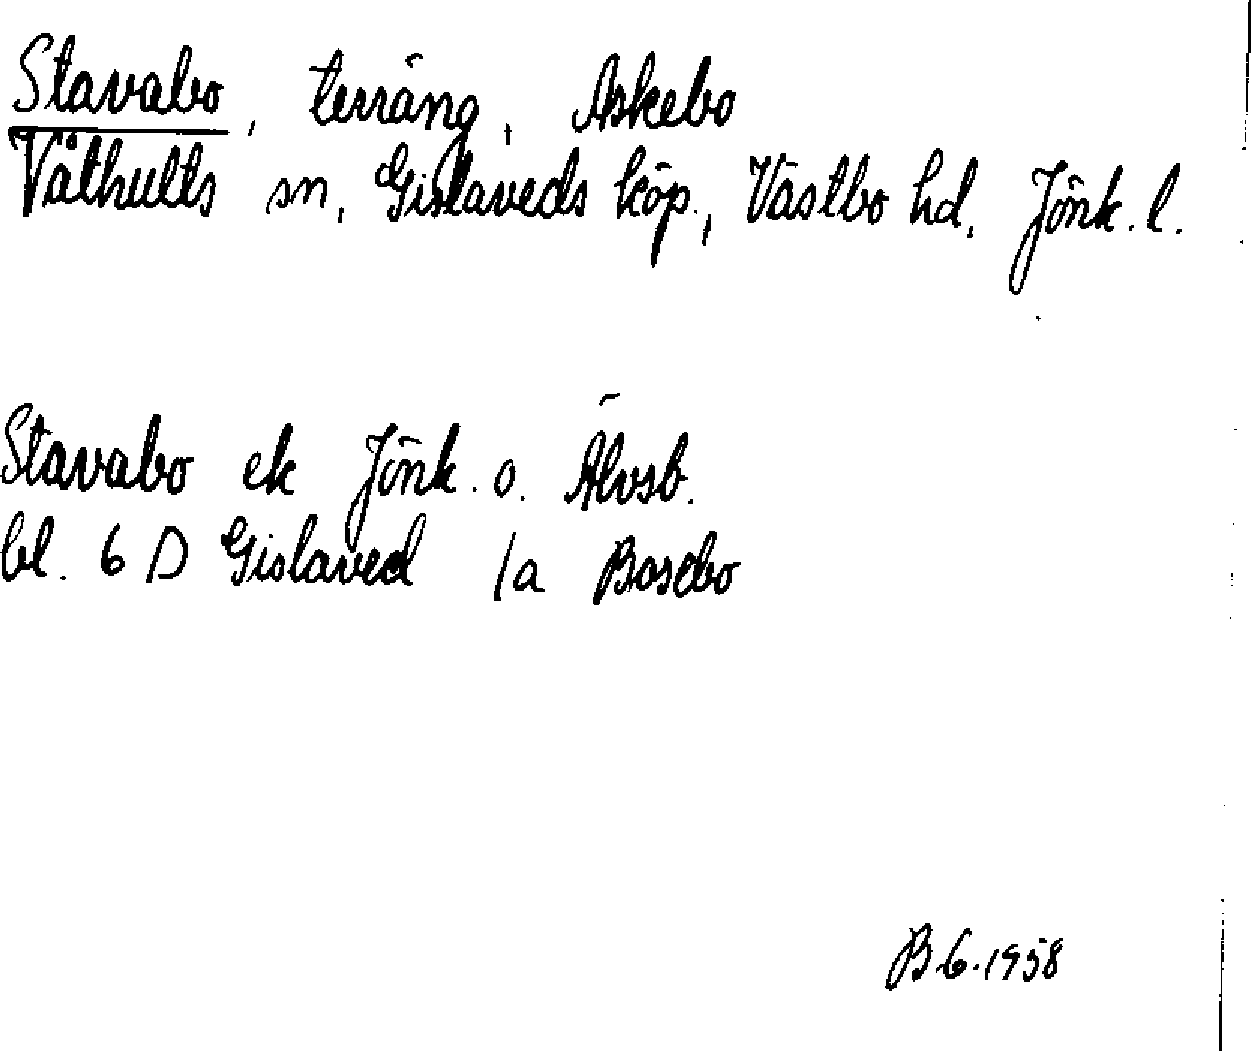 Stavabo, terräng, Askebo
Våthults sn, Gislaveds köp., Västbo hd, Jönk. l.
Stavabo ek Jönk. o. Älvsb.
bl. 6 D Gislaved 1a Bosebo
B.G. 1958